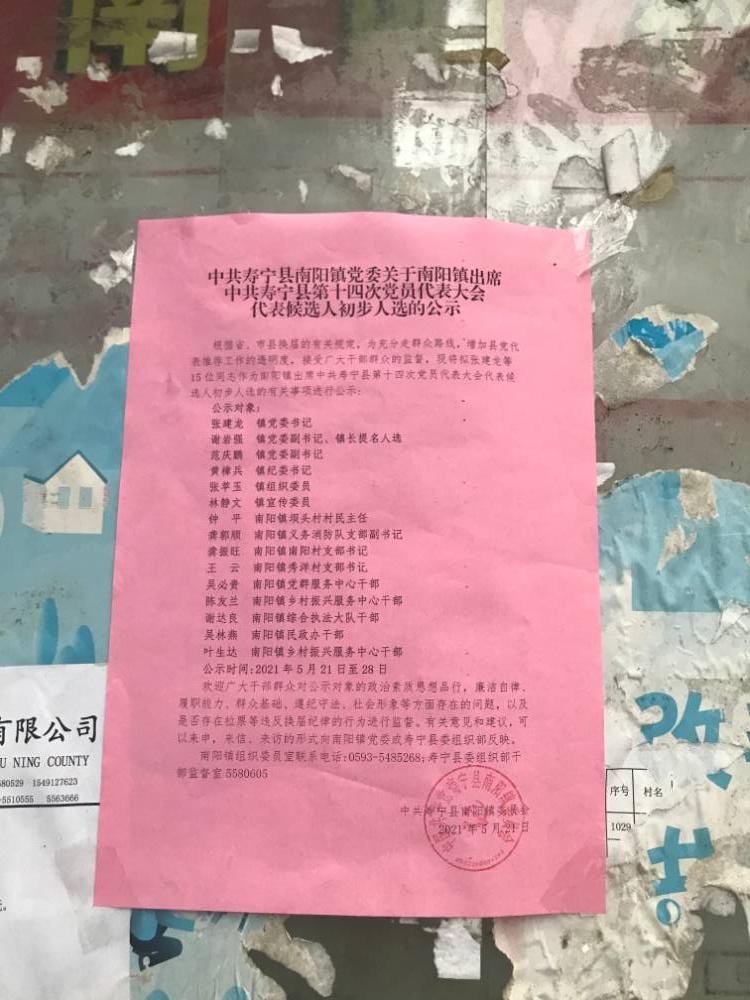 南
中共寿宁县南阳镇党委关于南阳镇出席
中共寿宁县第十四次党员代表大会
代表候选人初步人选的公示
根据省、市县换届的有关规定，为充分走群众路线，增加县党代
表推荐工作的透明度，接受广大干部群众的监督，现将拟张建龙等
15位同志作为南阳镇出席中共寿宁县第十四次党员代表大会代表候
选人初步人选的有关事项进行公示：
公示对象：
张建龙 镇党委书记
谢岩强 镇党委副书记、镇长提名人选
范庆鹏 镇党委副书记
黄樟兵 镇纪委书记
张苹玉 镇组织委员
林静文 镇宣传委员
钟 平 南阳镇坝头村村民主任
龚郭顺 南阳镇义务消防队支部副书记
龚振旺 南阳镇南阳村支部书记
王 云 南阳镇秀洋村支部书记
吴必贵 南阳镇党群服务中心干部
陈友兰 南阳镇乡村振兴服务中心干部
谢达良 南阳镇综合执法大队干部
吴林燕 南阳镇民政办干部
叶生达 南阳镇乡村振兴服务中心干部
公示时间：2021年5月21日至28日
欢迎广大干部群众对公示对象的政治素质思想品行，廉洁自律、
履职能力、群众基础、遵纪守法、社会形象等方面存在的问题，以及
是否存在拉票等违反换届纪律的行为进行监督。有关意见和建议，可
以来申，来信、来访的形式向南阳镇党委或寿宁县委组织部反映。
南阳镇组织委员室联系电话：0593-5485268；寿宁县委组织部干
部监督室5580605
中共寿宁县南阳镇委员会
2021年5月21日
有限公司
U NING COUNTY
5580529 1549127623
-5510555 5563666
序号 村名
1029